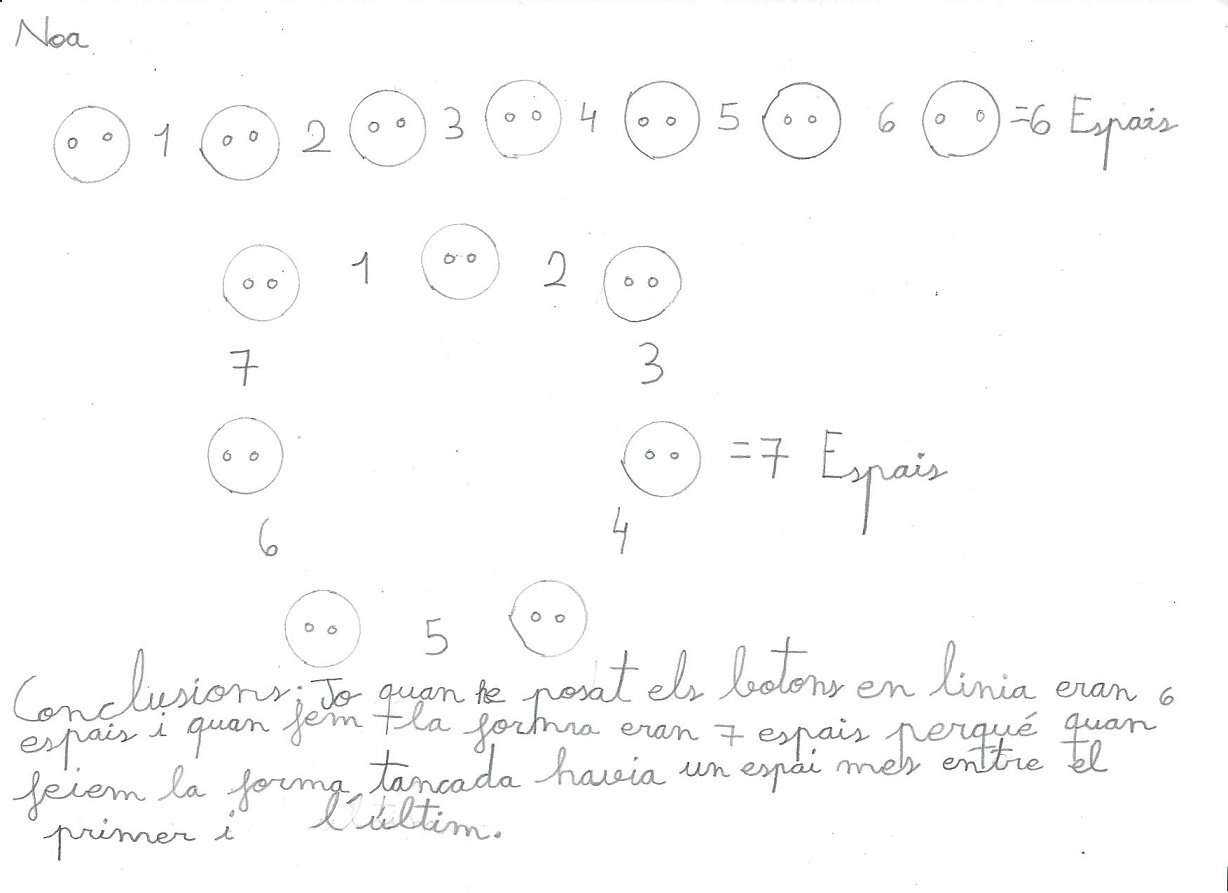 Noa
1 2 3 4 5 6 =6 Espais
1 2
7 3
=7 Espais
6 4
5
Conclusions: Jo quan he posat els botons en linia eran 6
espais i quan fem la forma eran 7 espais perqué quan
feiem la forma tancada havia un espai mes entre el
primer i l'últim.